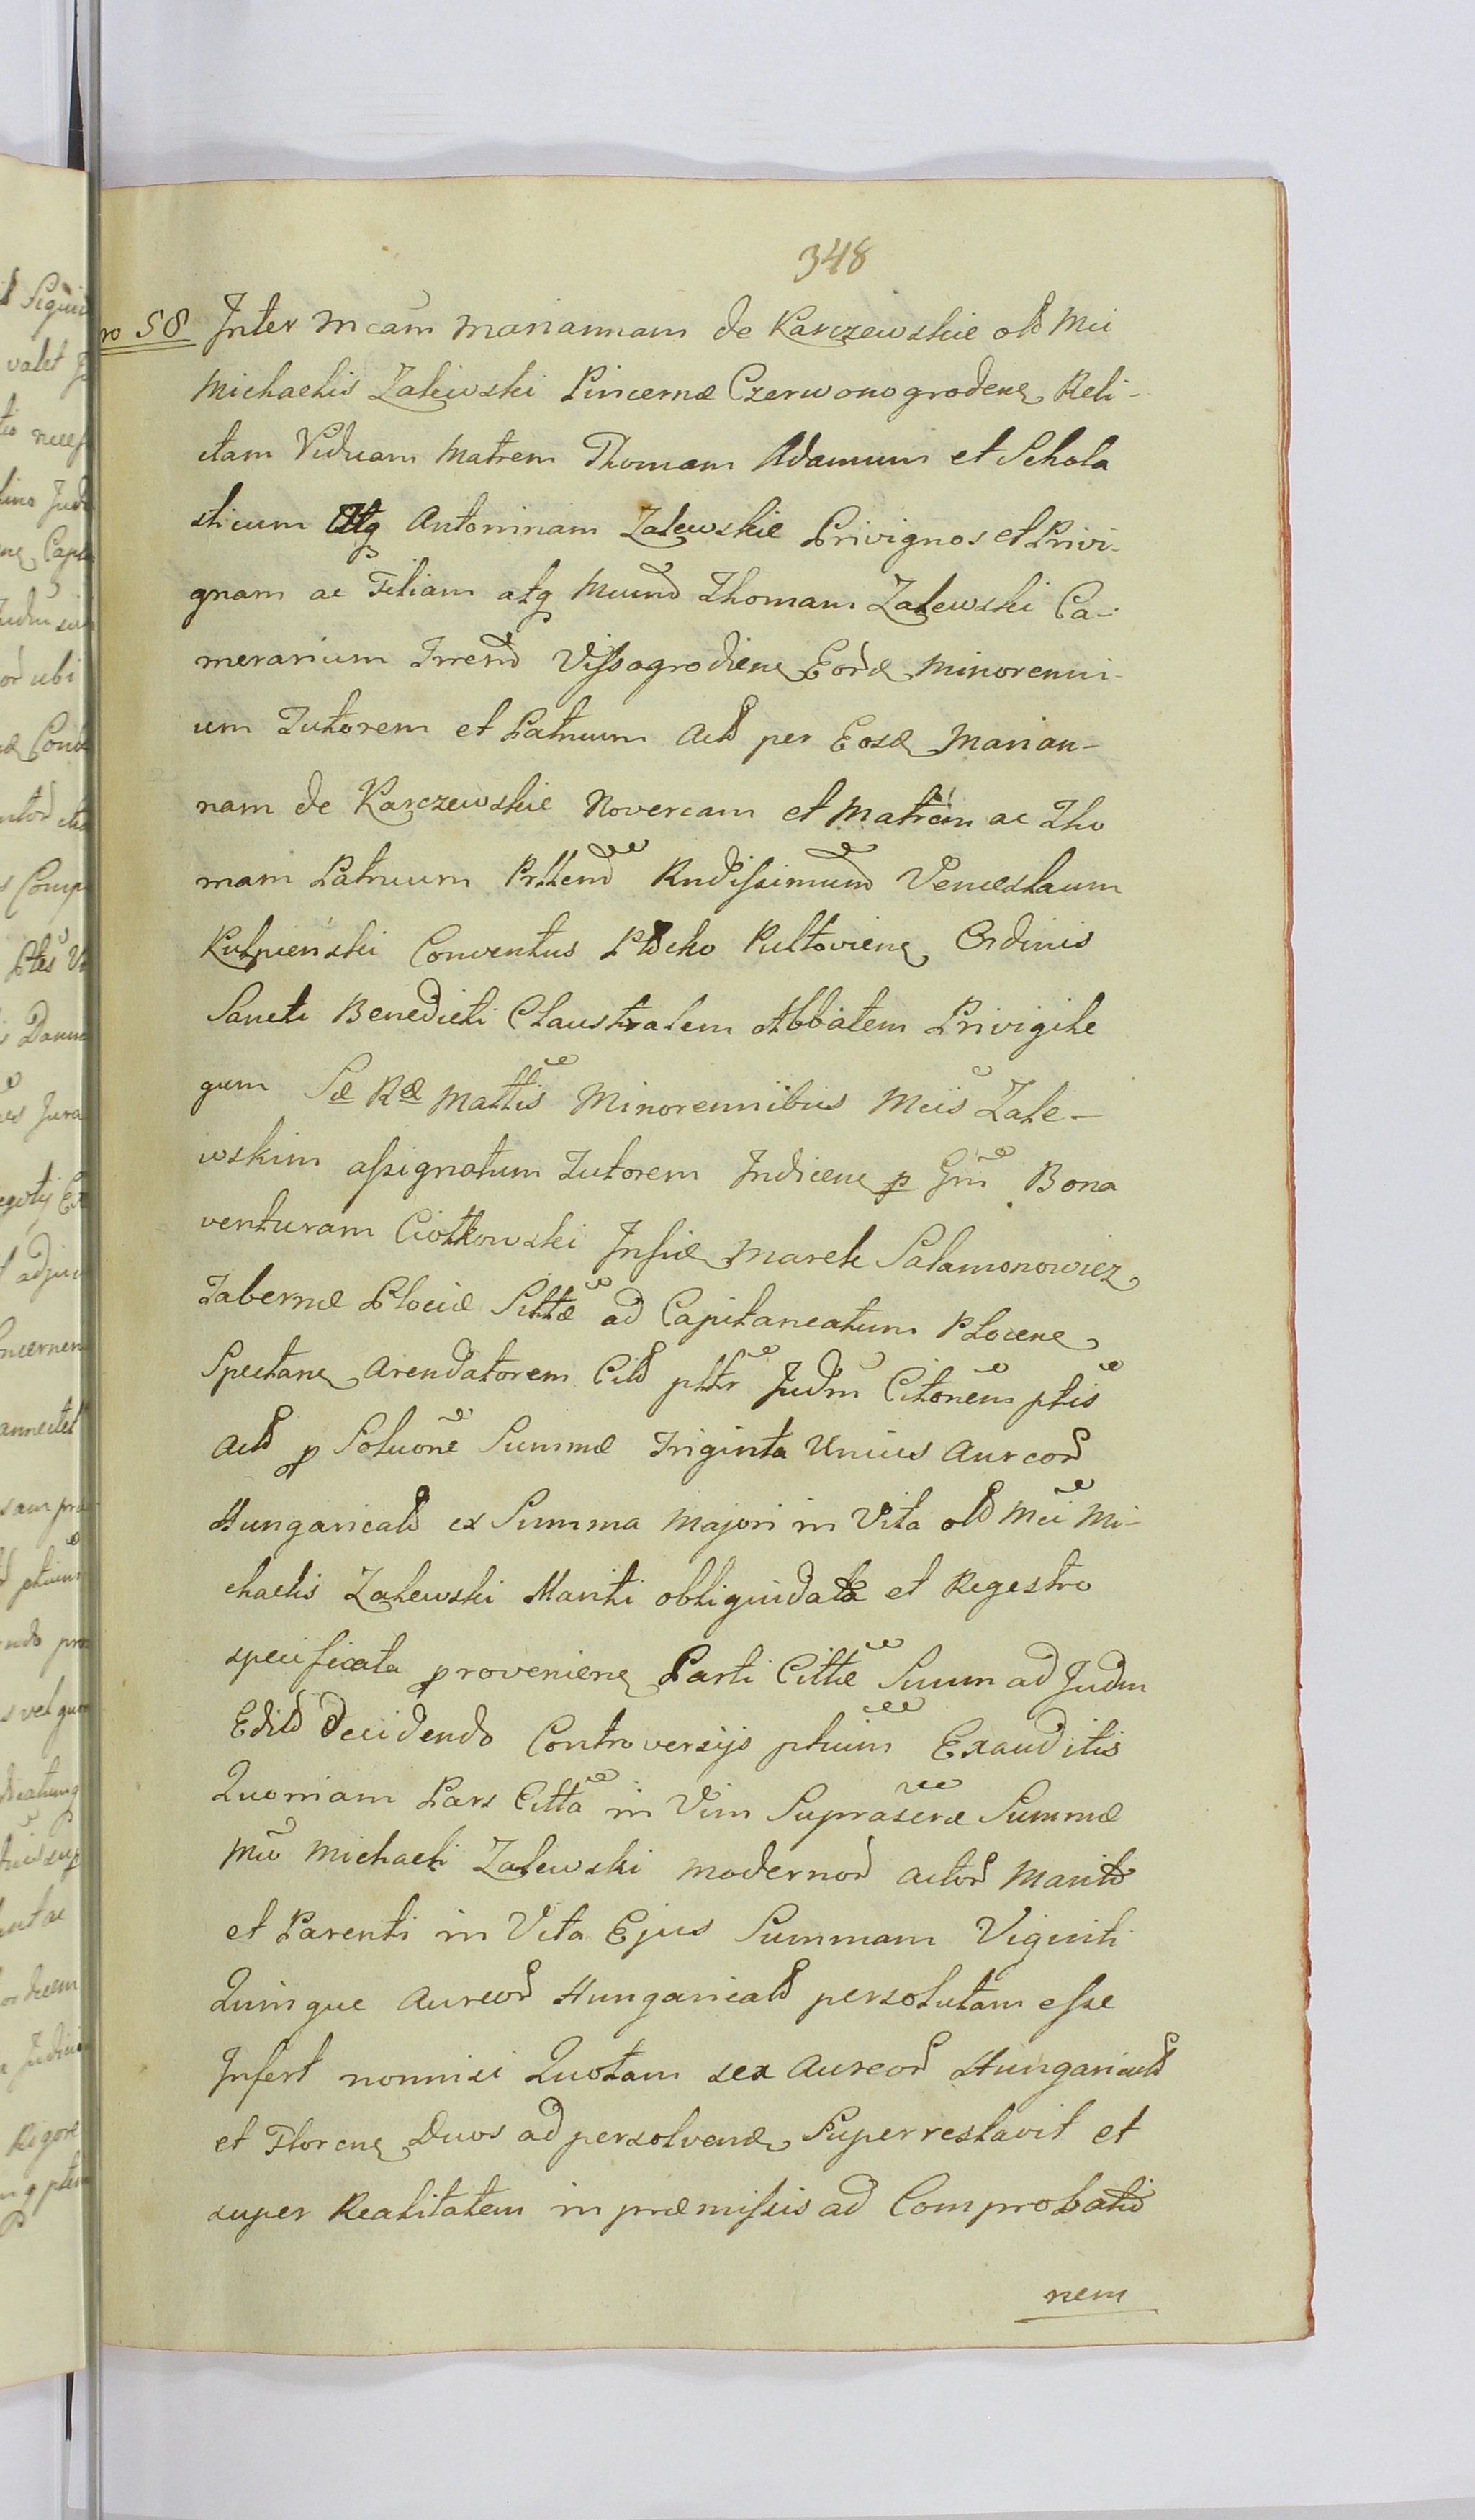 348
ro 58 Inter Mcam Mariannam de Karczewskie olb Mci
Michaelis Zalewski Pincernæ Czerwonogrodens Reli-
ctam Viduam Matrem Thomam Adamum et Schola
sticum Atq Antoninam Zalewskie Privignos et Privi-
gnam ac Filiam atq Mcum Thomam Zalewski Ca-
merarium Trrem Vissogrodiens Eord Minorenni-
um Tutorem et Patruum Actt per Eosd Marian-
nam de Karczewskie Novercam et Matrem ac Tho
mam Patruum Prttem Rndissimum Venceslaum
Kulpieński Conventus Plocko Pultoviens Ordinis
Sancti Benedicti Claustralem Abbatem Privigile
gum Sæ Ræ Mattis Minorennibus Mcis Zale-
wskim assignatum Tutorem Indicens p Gm Bona
venturam Ciotkowski Infid Marek Salamonowicz
Tabernæ Plociæ Sittæ ad Capitaneatum Plocens
Spectans Arendatorem Citt pttr Judm Citonem ptis
Actt p Soluone Summæ Triginta Unius Aureor
Hungarical ex Summa Majori in Vita olb Mci Mi-
chaelis Zalewski Mariti obliquidata et Regestro
specificata proveniens Parti Cittæ Suum ad Judm
Edit Decidendo Controversijs ptium Exauditis
Quoniam Pars Citta in Vim Suprascræ Summæ
Mco Michaeli Zalewski modernor actor Marito
et Parenti in Vita Ejus Summam Viginti
Quinque Aureor Hungarical persolutam esse
Infert nonnisi Quotam sex Aureor Hungarical
et Florens Duos ad persolvend Superrestavit et
super Realitatem in præmissis ad Comprobatio
nem